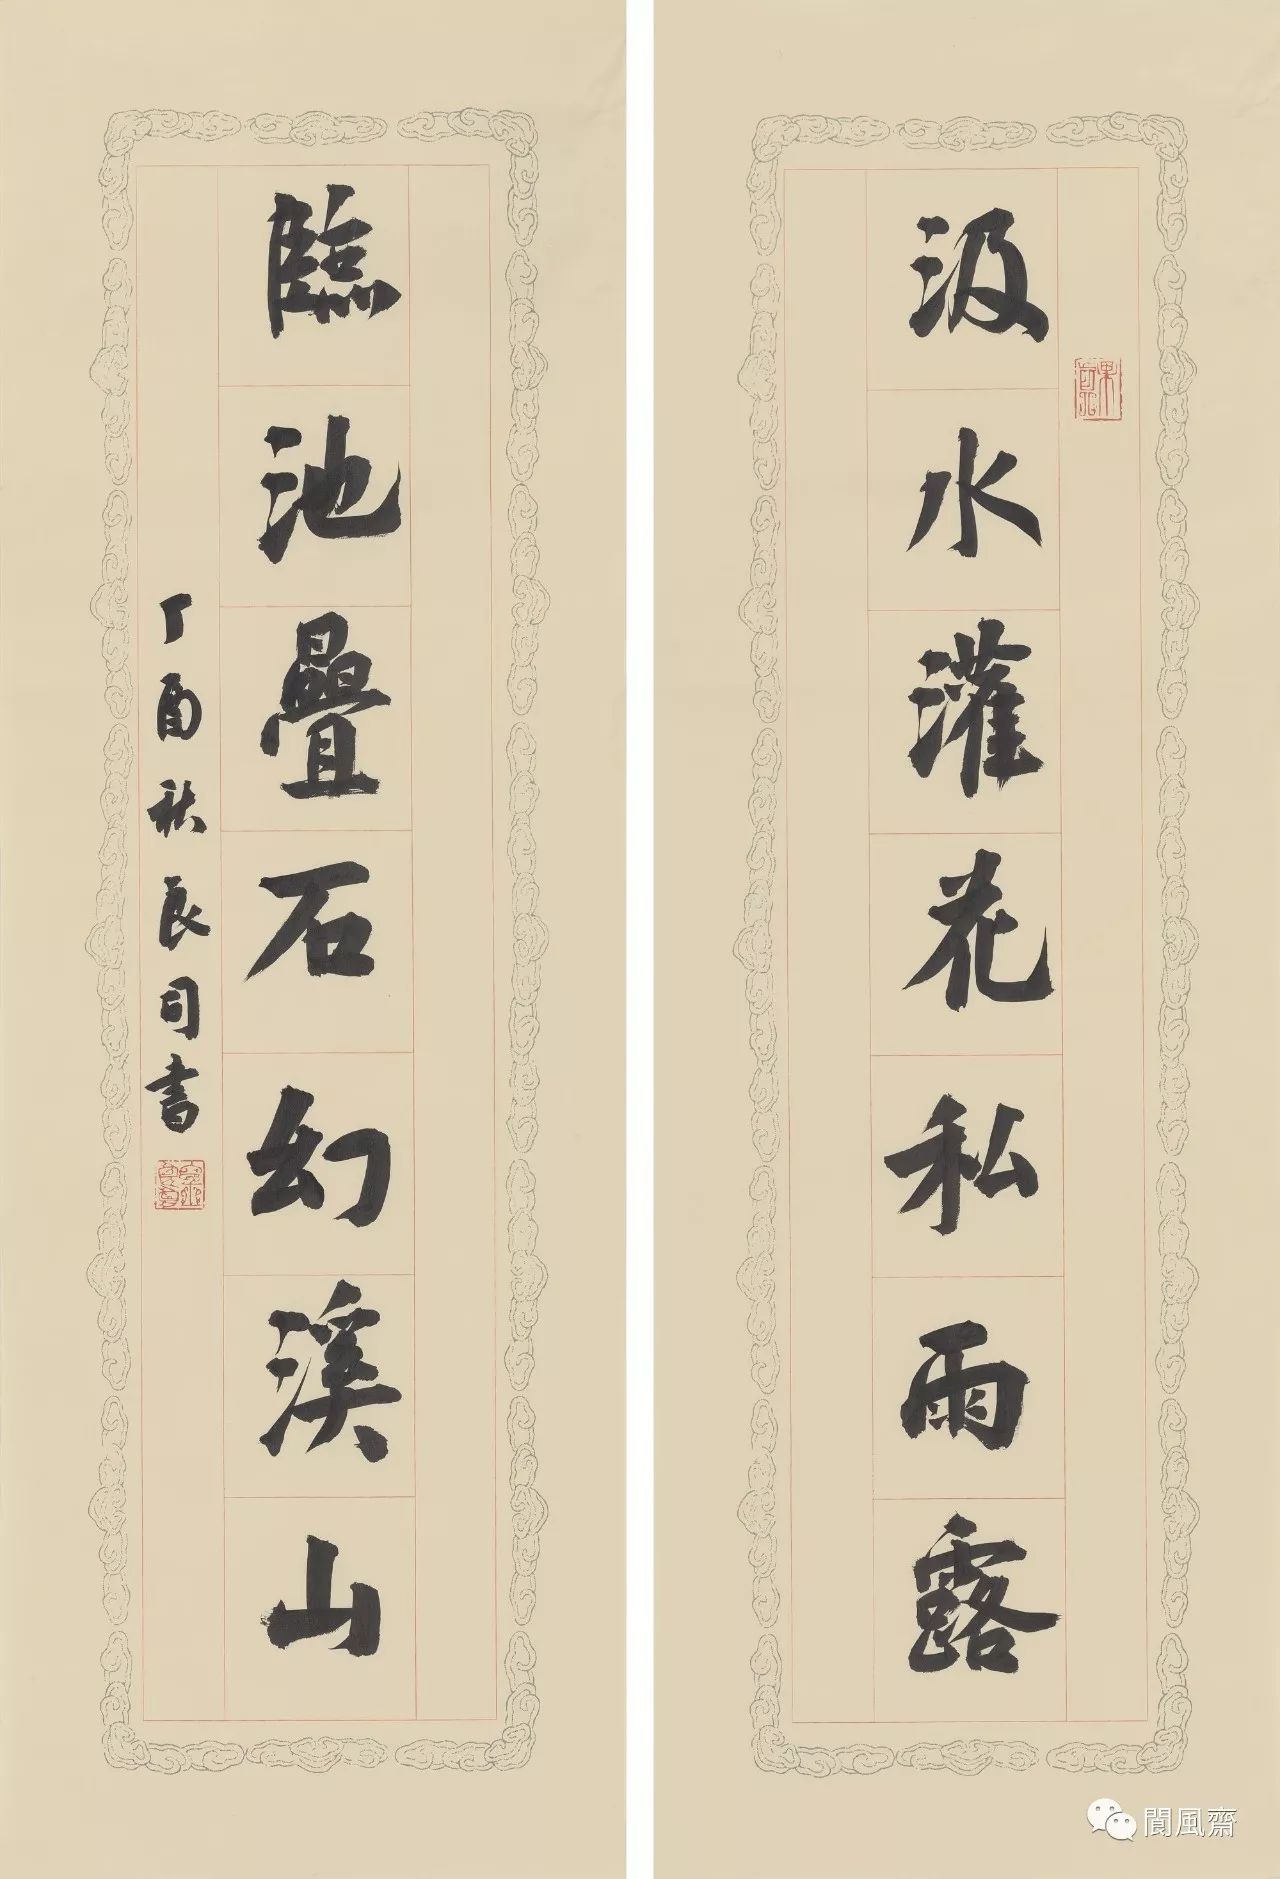 汲水灌花私雨露
臨池疊石幻溪山
丁酉秋良司書
閬風齋